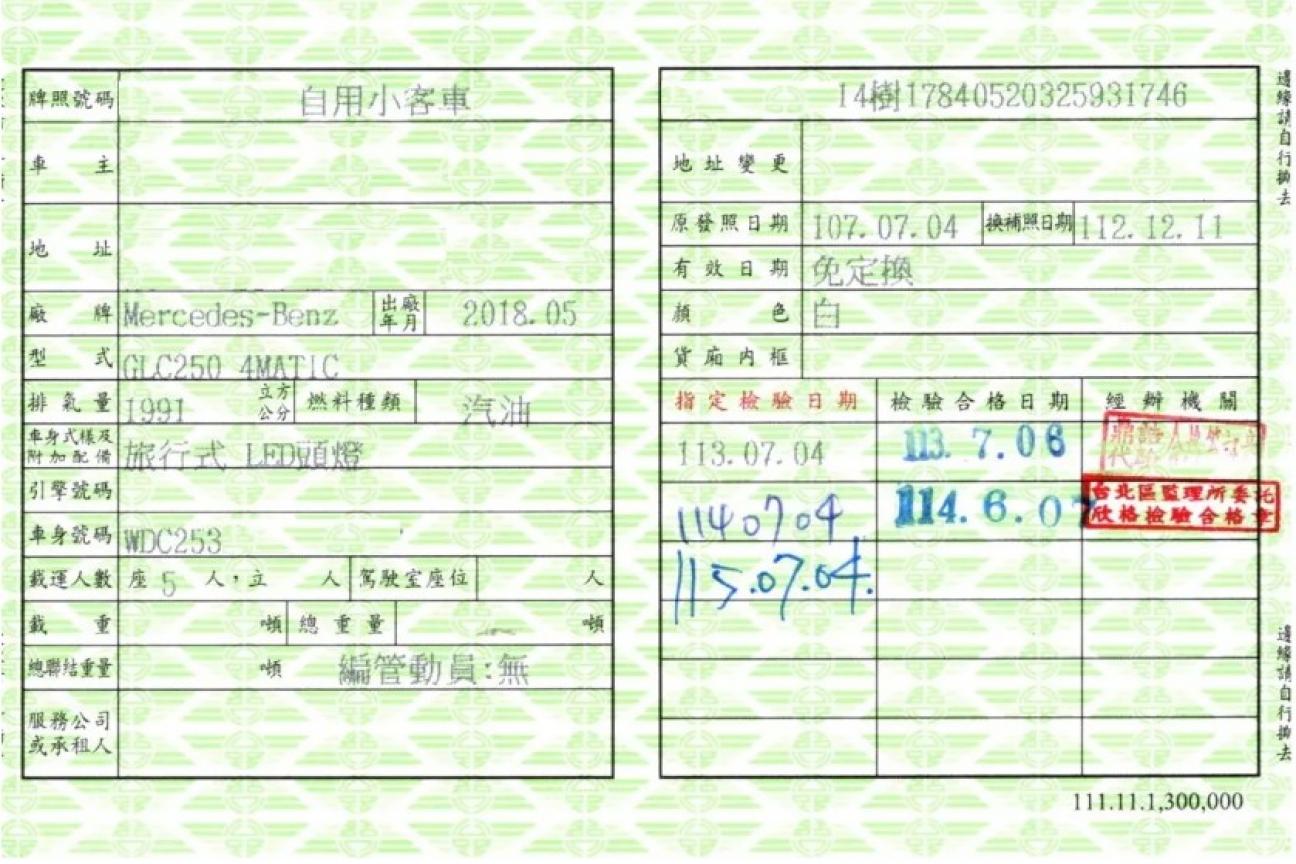 牌照號碼 自用小客車
車主
地址
廠牌 Mercedes-Benz 出廠年月 2018.05
型式 GLC250 4MATIC
排氣量 1991 立方公分 燃料種類 汽油
車身式樣及附加配備 旅行式 LED頭燈
引擎號碼
車身號碼 WDC253
載運人數 座 5 人,立 人 駕駛室座位 人
載重 噸 總重量 噸
總聯結重量 噸 編管動員:無
服務公司或承租人
14樹17840520325931746
地址變更
原發照日期 107.07.04 換補照日期 112.12.11
有效日期 免定換
顏色 白
貨廂內框
指定檢驗日期 檢驗合格日期 經辦機關
113.07.04 113.7.06
1140704 114.6.07 台北區監理所委託
欣格檢驗合格章
115.07.04.
111.11.1,300,000
邊緣請自行撕去
邊緣請自行撕去